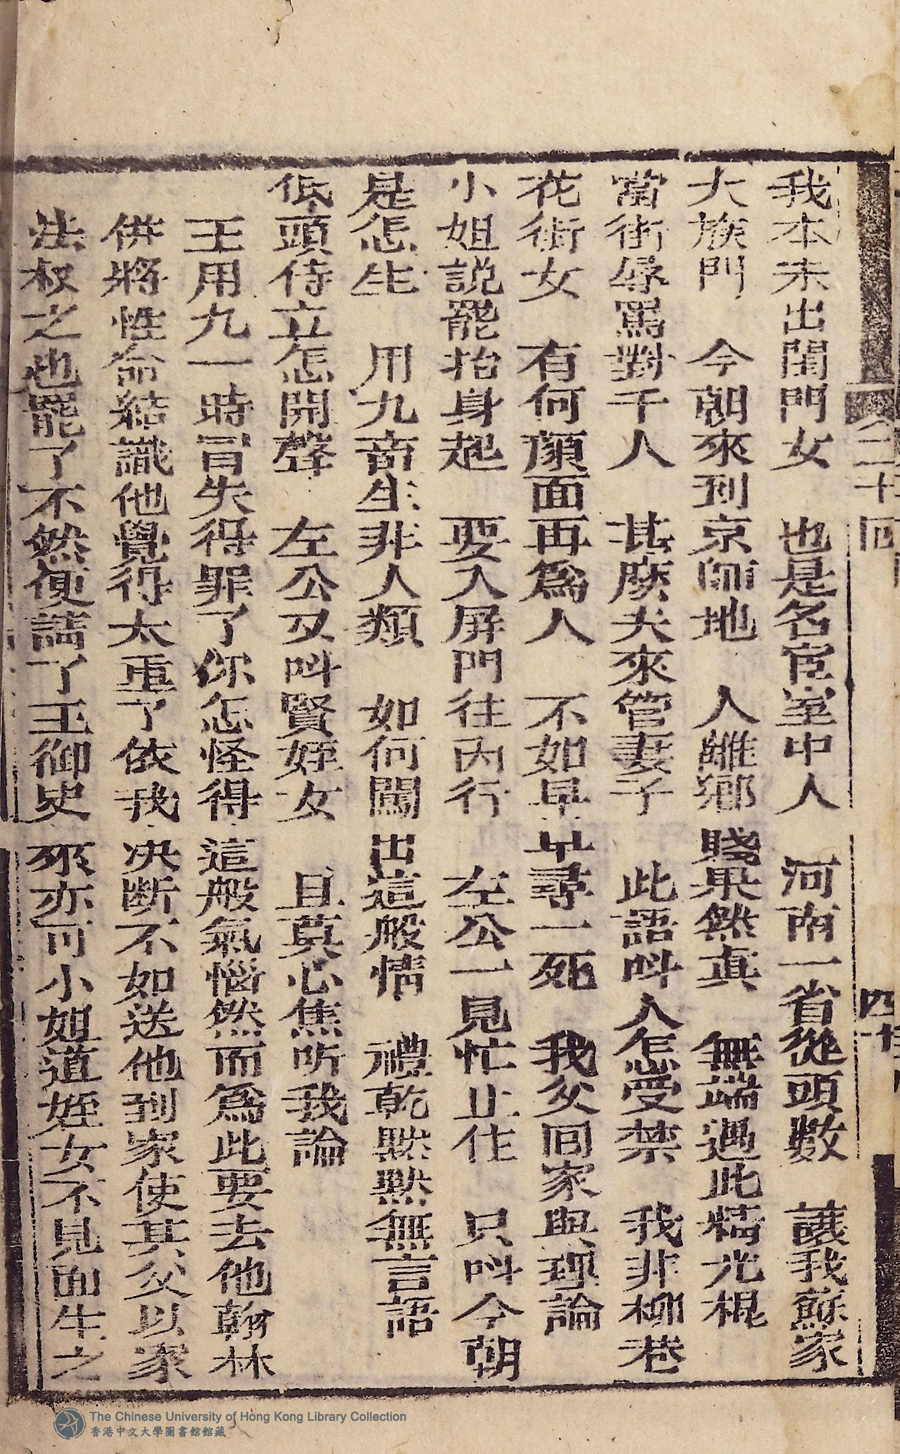 二十回
四十
我本未出閨門女　也是名宦室中人　河南一省從頭數　讓我蘇家
大族門　今朝來到京師地　人離鄉賤果然真　無端遇此精光棍
當街辱罵對千人　甚麽夫來管妻子　此語呌人怎受禁　我非柳巷
花街女　有何顏面再爲人　不如早早尋一死　我父回家與理論
小姐説罷抬身起　要入屏門往內行　左公一見忙止住　只呌今朝
是怎生　用九畜生非人類　如何闖出這般情　禮乾黙黙無言語
低頭侍立怎開聲　左公又呌賢姪女　且莫心焦听我論
王用九一時冒失得罪了你怎怪得這般氣惱然而爲此要去他翰林
併將性命結識他覺得太重了依我决断不如送他到家使其父以家
法叔之也罷了不然便請了王御史來亦可小姐道姪女不見面生之
The Chinese University of Hong Kong Library Collection
香港中文大學圖書館館藏